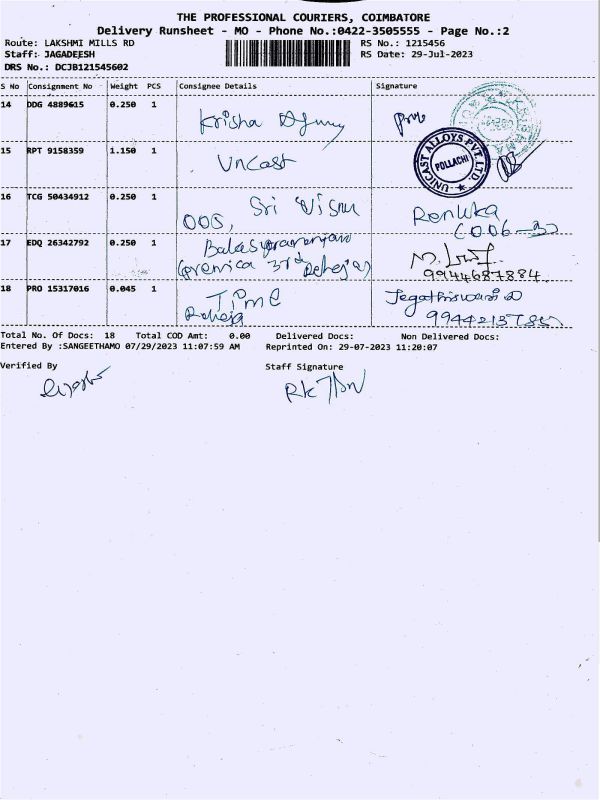 THE PROFESSIONAL COURIERS, COIMBATORE
Delivery Runsheet - MO - Phone No.:0422-3505555 - Page No.:2
Route: LAKSHMI MILLS RD
RS No.: 1215456
Staff: JAGADEESH
RS Date: 29-Jul-2023
DRS No.: DCJB121545602
S No Consignment No Weight PCS Consignee Details Signature
14 DDG 4889615 0.250 1 Krisha
15 RPT 9158359 1.150 1 Uncast
UNICAST ALLOYS PVT. LTD.
POLLACHI
16 TCG 50434912 0.250 1 Sri Visnu Renuka
005,
17 EDQ 26342792 0.250 1
9944687884
18 PRO 15317016 0.045 1 TIME
Raheja
Total No. Of Docs: 18 Total COD Amt: 0.00 Delivered Docs: Non Delivered Docs:
Entered By :SANGEETHAMO 07/29/2023 11:07:59 AM Reprinted On: 29-07-2023 11:20:07
Verified By Staff Signature